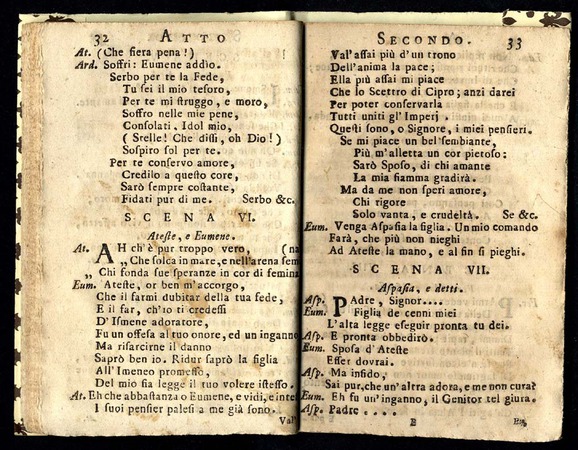 32 ATTO
At. (Che fiera pena!)
Ard. Soffri: Eumene addio.
Serbo per te la Fede,
Tu sei il mio tesoro,
Per te mi struggo, e moro,
Soffro nelle mie pene,
Consolati. Idol mio,
( Stelle! Che dissi, oh Dio! )
Sospiro sol per te.
Per te conservo amore,
Credilo a questo core,
Sarò sempre costante,
Fidati pur di me. Serbo &c.
SCENA VI.
Ateste, e Eumene.
At. AH ch'è pur troppo vero, (na
„ Che solca in mare, e nell'arena sem
„ Chi fonda sue speranze in cor di femina
Eum. Ateste, or ben m'accorgo,
Che il farmi dubitar della tua fede,
E il far, ch'io ti credessi
D'Ismene adoratore,
Fu un offesa al tuo onore, ed un inganno
Ma risarcirne il danno
Saprò ben io. Ridur saprò la figlia
All'Imeneo promesso,
Del mio sia legge il tuo volere istesso.
At. Eh che abbastanza o Eumene, e vidi, e inte
I suoi pensier palesi a me già sono.
Val'
SECONDO. 33
Val'assai più d'un trono
Dell'anima la pace;
Ella più assai mi piace
Che lo Scettro di Cipro; anzi darei
Per poter conservarla
Tutti uniti gl'Imperj.
Questi sono, o Signore, i miei pensieri.
Se mi piace un bel'sembiante,
Più m'alletta un cor pietoso:
Sarò Sposo, di chi amante
La mia fiamma gradirà.
Ma da me non speri amore,
Chi rigore
Solo vanta, e crudeltà. Se &c.
Eum. Venga Aspasia la figlia. Un mio comando
Farà, che più non nieghi
Ad Ateste la mano, e al fin si pieghi.
SCENA VII.
Aspasia, e detti.
Asp. PAdre, Signor....
Eum. Figlia de cenni miei
L'alta legge eseguir pronta tu dei.
Asp. E pronta obbedirò.
Eum. Sposa d'Ateste
Esser dovrai.
Asp. Ma infido,
Sai pur, che un'altra adora, e me non cura?
Eum. Eh fu un'inganno, il Genitor tel giura.
Asp. Padre ....
E